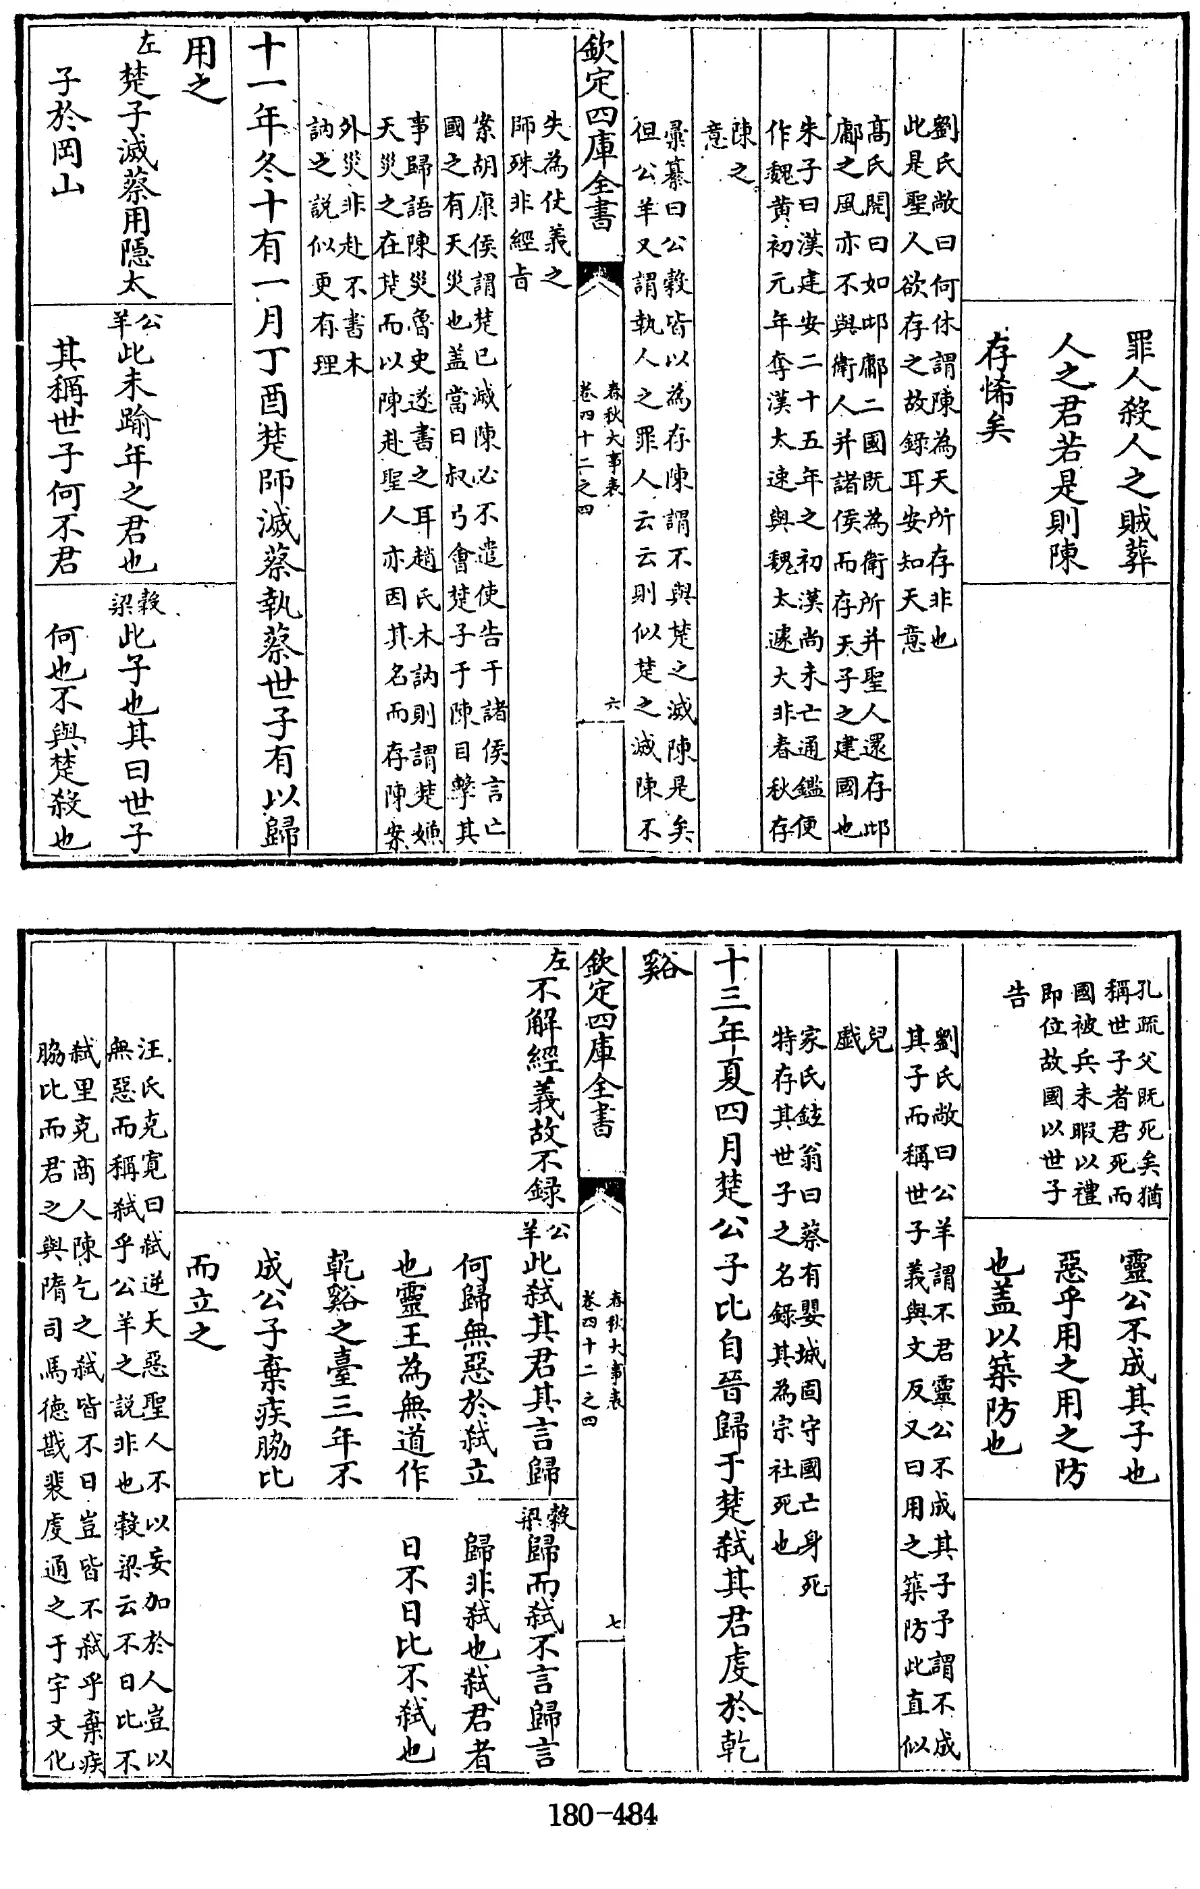 罪人殺人之賊葬
人之君若是則陳
存悕矣
劉氏敞曰何休謂陳為天所存非也
此是聖人欲存之故録耳安知天意
髙氏閌曰如邶鄘二國既為衛所并聖人還存邶
鄘之風亦不與衛人并諸侯而存天子之建國也
朱子曰漢建安二十五年之初漢尚未亡通鑑便
作魏黄初元年奪漢太速與魏太遽大非春秋存
陳之
意
彚纂曰公穀皆以為存陳謂不與楚之滅陳是矣
但公羊又謂執人之罪人云云則似楚之滅陳不
欽定四庫全書
春秋大事表
卷四十二之四
六
失為仗義之
師殊非經旨
案胡康侯謂楚已滅陳必不遣使告于諸侯言亡
國之有天災也盖當日叔弓會楚子于陳目擊其
事歸語陳災魯史遂書之耳趙氏木訥則謂楚嫌
天災之在楚而以陳赴聖人亦因其名而存陳案
外災非赴不書木
訥之説似更有理
十一年冬十有一月丁酉楚師滅蔡執蔡世子有以歸
用之
左
楚子滅蔡用隱太
子於岡山
公羊
此未踰年之君也
其稱世子何不君
穀梁
此子也其曰世子
何也不與楚殺也
孔疏父既死矣猶
稱世子者君死而
國被兵未暇以禮
即位故國以世子
告
靈公不成其子也
惡乎用之用之防
也盖以築防也
劉氏敞曰公羊謂不君靈公不成其子予謂不成
其子而稱世子義與文反又曰用之築防此直似
兒
戯
家氏鉉翁曰蔡有嬰城固守國亡身死
特存其世子之名録其為宗社死也
十三年夏四月楚公子比自晉歸于楚弑其君虔於乾
谿
欽定四庫全書
春秋大事表
卷四十二之四
七
左
不解經義故不録
公羊
此弑其君其言歸
何歸無惡於弑立
也靈王為無道作
乾谿之臺三年不
成公子棄疾脇比
而立之
穀梁
歸而弑不言歸言
歸非弑也弑君者
日不日比不弑也
汪氏克寛曰弑逆大惡聖人不以妄加於人豈以
無惡而稱弑乎公羊之説非也穀梁云不日比不
弑里克商人陳乞之弑皆不日豈皆不弑乎棄疾
脇比而君之與隋司馬徳戡裴虔通之于宇文化
180-484